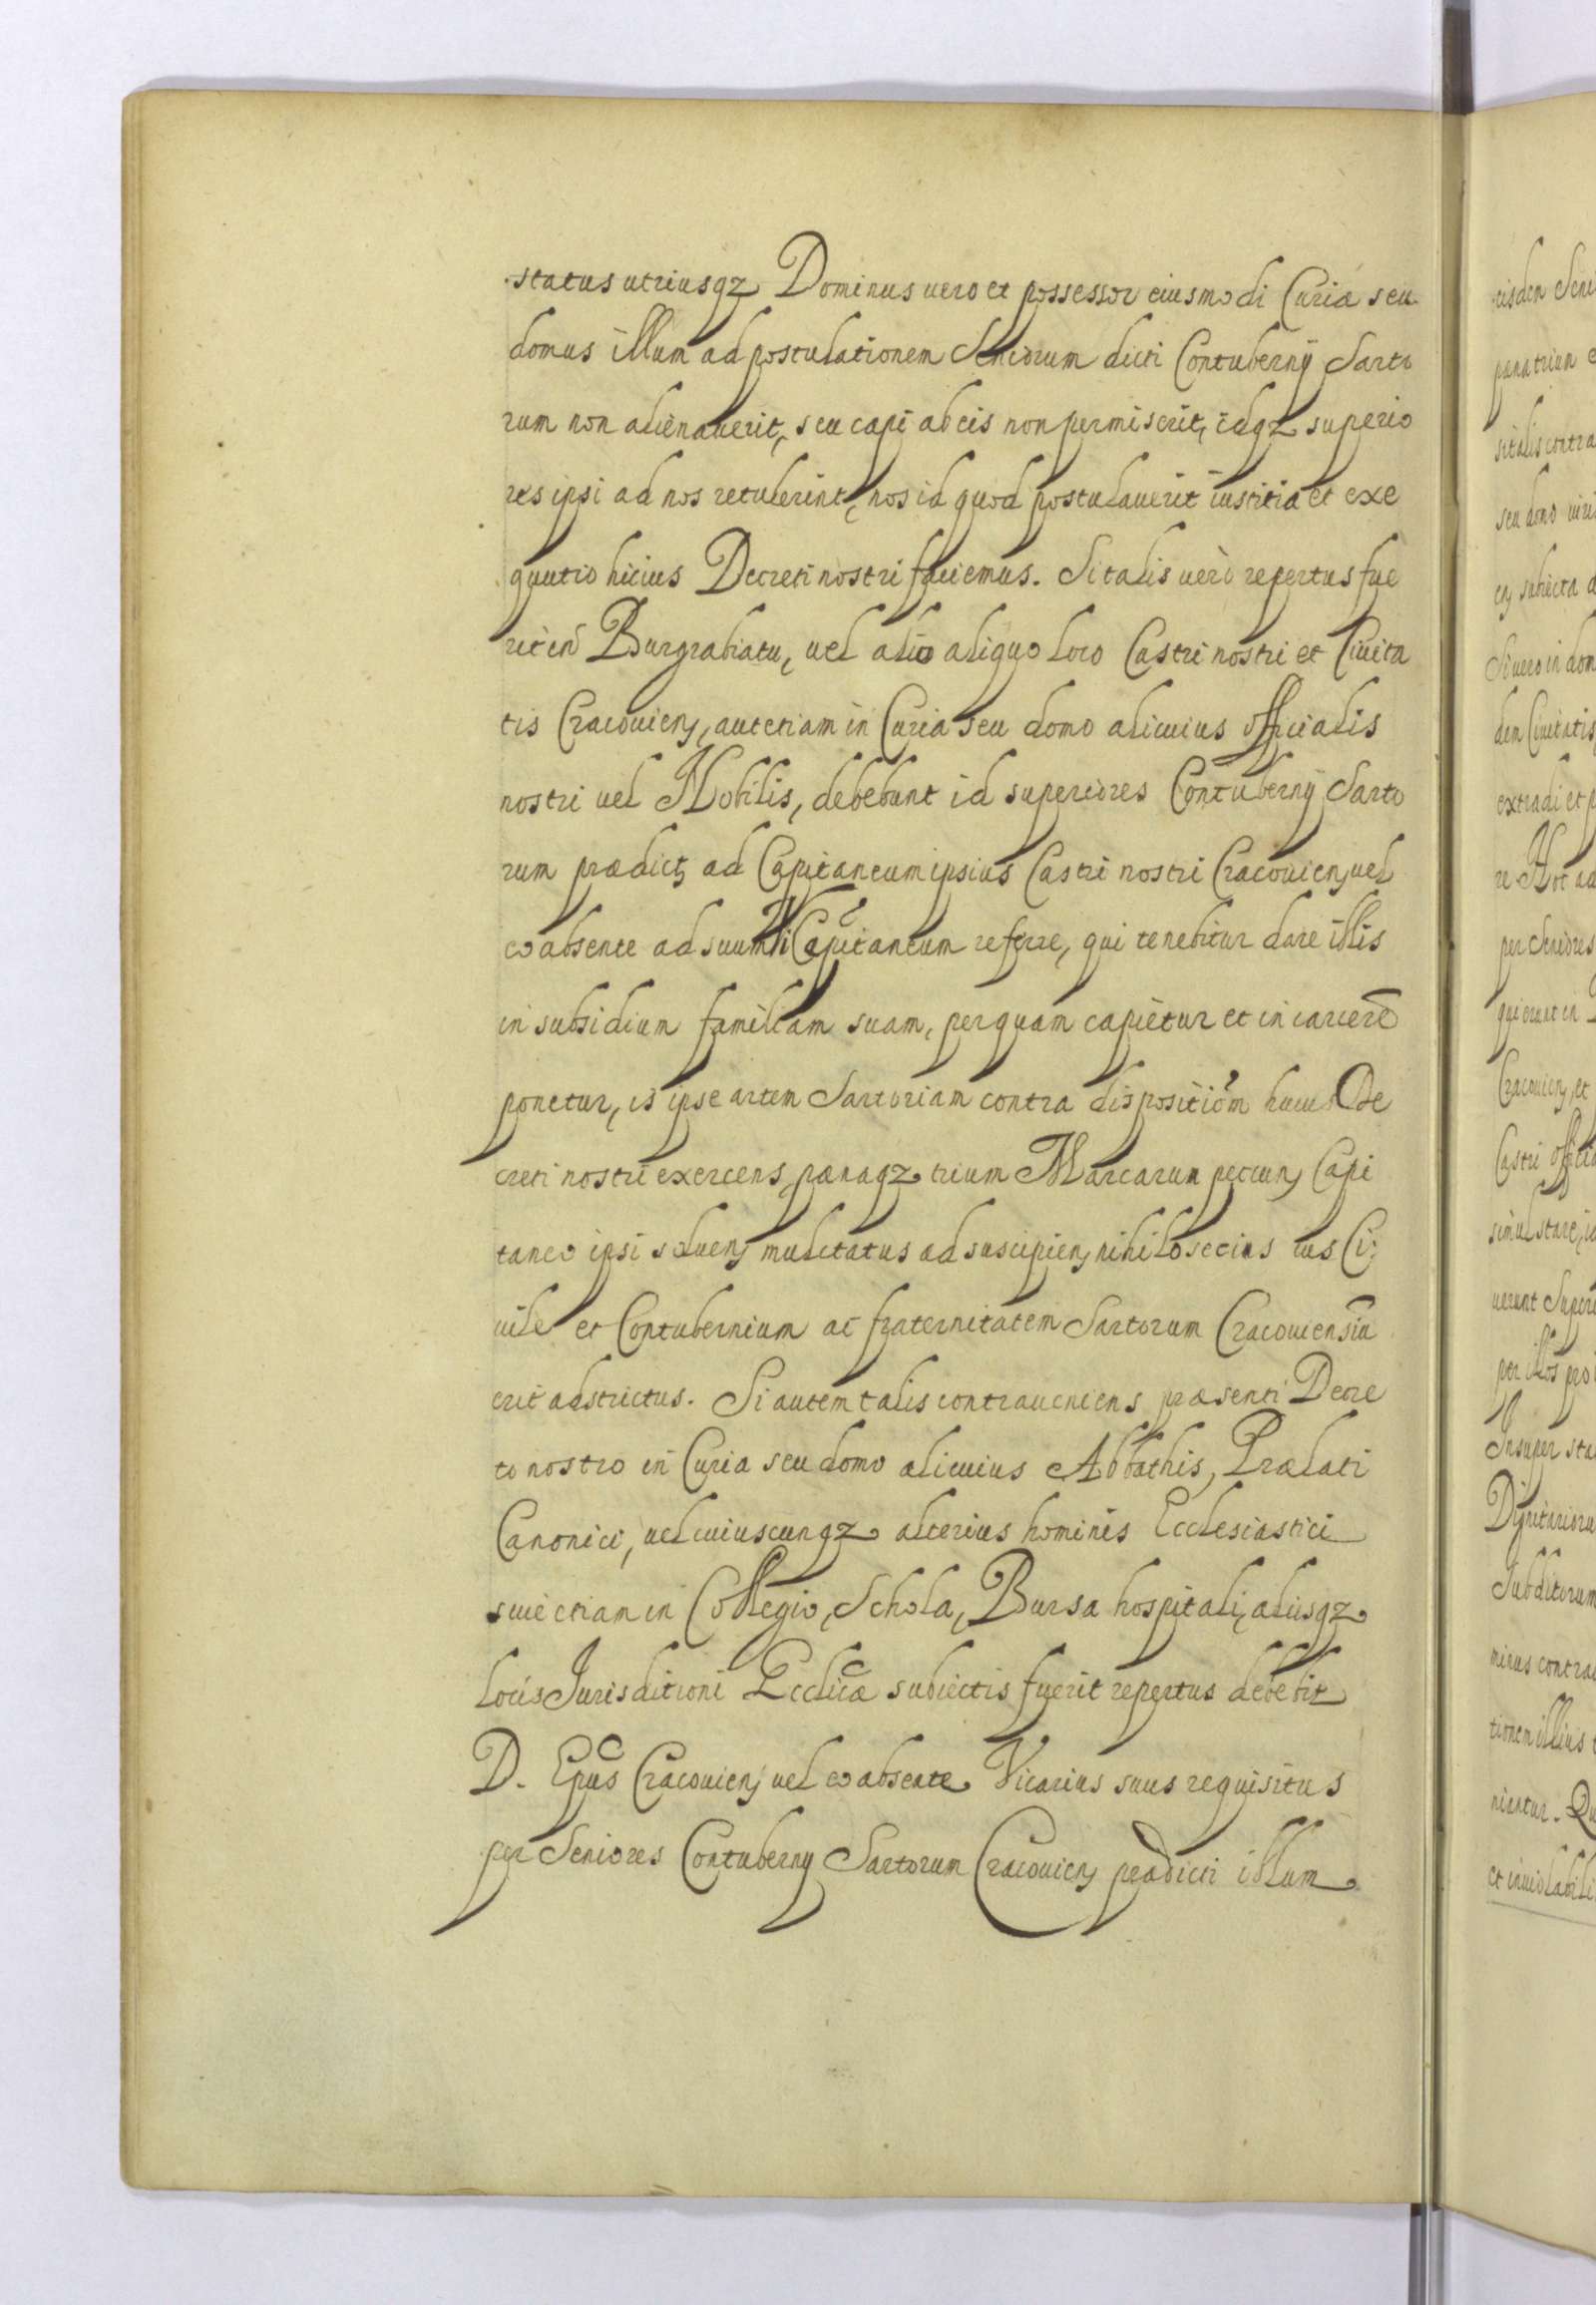 status utriusqz Dominus uero et possessor eiusmodi Curiæ seu
domus illum ad postulationem Seniorum dicti Contubernÿ Sarto
rum non alienauerit, seu capi ab eis non permiserit, idqz superio
res ipsi ad nos retulerint, nos id quod postulauerit iustitia et exe
quutio huius Decreti nostri faciemus. Si talis uerò repertus fue
rit in Burgrabiatu, uel alio aliquo loco Castri nostri et Ciuita
tis Cracouien, aut etiam in Curia seu domo alicuius officialis
nostri uel Nobilis, debebunt id superiores Contubernÿ Sarto
rum prædict ad Capitaneum ipsius Castri nostri Cracouien uel
eo absente ad suum ViCapitaneum referre, qui tenebitur dare illis
in subsidium familiam suam, per quam capietur et in carcerē
ponetur, is ipse artem Sartoriam contra dispositiōm huius De
creti nostri exercens, pænaqz trium Marcarum pecun Capi
taneo ipsi soluen mulctatus ad suscipien nihilosecius ius Ci
uile et Contubernium ac fraternitatem Sartorum Cracouiensiū
erit adstrictus. Si autem talis contraueniens præsenti Decre
to nostro in Curia seu domo alicuius Abbathis, Prælati
Canonici, uel cuiuscunqz alterius hominis Ecclesiastici
siue etiam in Collegio, Schola, Bursa hospitali, aliisqz
locis Jurisditioni Ecclicæ subiectis fuerit repertus debebit
D. Epus Cracouien uel eo absente Vicarius suus requisitus
per Seniores Contuberny Sartorum Cracouien prædicti illum
eisdem Seni
pæna trium
sitalis contra
seu domo
subiecta
Si uero in dom
dem Ciuitatis
extradi et p
re Hoc ad
per Seniores
qui erunt in
Cracouien et
Castri officia
simul stare
uerunt Superi
per illos pro
Insuper sta
Dignitariorum
Subditorum
minus contra
tionem illius
niantur. Qu
et inuiolabili